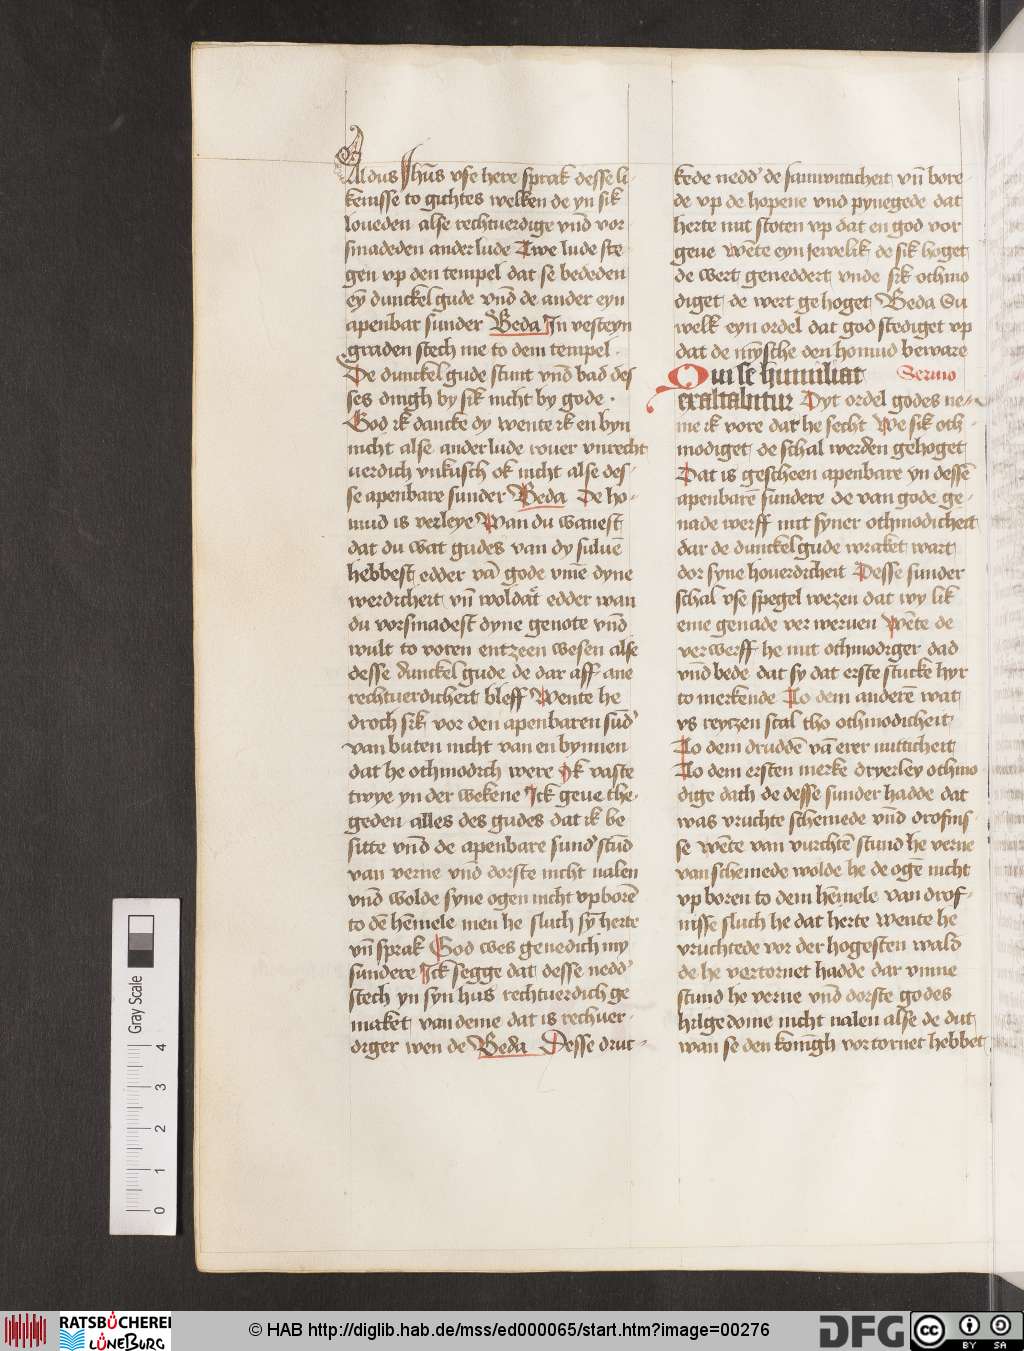 Aldus Jhūs vse here sprak desse li-
kenisse to gichtes welken de yn sik
loueden alse rechtuerdige vnd vor
smadeden ander lude Twe lude ste
gen vp den tempel dat se bededen
eȳ dunckelgude vnd de ander eyn
apenbar sunder Beda Jn vefteyn
graden stech me to dem tempel ·
De dunckelgude stunt vnd bad des
ses dingh by sik nicht by gode ·
God ik dancke dy wente ik en byn
nicht alse ander lude rouer vnrecht
uerdich vnkusch ok nicht alse des-
se apenbare sunder Beda De ho-
mud is verleye Wan du wanest
dat du wat gudes van dy suluē
hebbest edder vā gode vmē dyne
werdicheit vn̄ woldat edder wan
du vorsmadest dyne genote vnd
wult to voren entzeen wesen alse
desse dunckelgude de dar aff ane
rechtuerdicheit bleff Wente he
droch sik vor den apenbaren sūd'
van buten nicht van en bynnen
dat he othmodich were Ok vaste
twye yn der wekene Jck geue the-
geden alles des gudes dat ik be
sitte vnd de apenbare sund' stūd
van verne vnd dorste nicht nalen
vnd wolde syne ogen nicht vpborē
to dē hēmele men he sluch sȳ herte
vn̄ sprak God wes genedich my
sundere Jck segge dat desse nedd'
stech yn syn hus rechtuerdich ge
maket van deme dat is rechuer-
diger wen de Beda Desse drut-
kede nedd' de sammitticheit vn̄ bore-
de vp de hopene vnd pynegede dat
herte mit stoten vp dat en god vor
geue Wēte eyn jewelik de sik hoget
de wert geneddert vnde sik othmo
diget de wert gehoget Beda Su
welk eyn ordel dat god stediget vp
dat de mȳsche den homud beware
Qui se humiliat Sermo
exaltabitur Dyt ordel godes ne-
me ik vore dar he secht We sik oth-
modiget de schal werden gehoget
Dat is gescheen apenbare yn dessē
apenbarē sundere de van gode ge-
nade werff mit syner othmodicheit
dar de dunckelgude wraket wart
dor syne houerdicheit Desse sunder
schal vse spegel wezen dat wy lik
eme genade ver weruen Wēte de
verwerff he mit othmodiger dad
vnd bede dat sy dat erste stucke hyr
to merkende To dem anderē wat
vs reyczen scal tho othmodicheit
To dem druddē vā erer nutticheit
To dem ersten merke dryerley othmo
dige dach de desse sunder hadde dat
was vruchte schemede vnd drofnis-
se Wēte van vurchtē stund he verne
van schemede wolde he de ogē nicht
vp boren to dem hēmele van drof-
nisse sluch he dat herte Wente he
vruchtede vor der hogesten wald
de he vertornet hadde dar vmme
stund he verne vnd dorste godes
hilgedome nicht nalen alse de dut
wan se den konigh vortornet hebbet
Gray Scale
4
3
2
1
0
RATSBÜCHEREI
LÜNEBURG
© HAB http://diglib.hab.de/mss/ed000065/start.htm?image=00276
DFG
cc
BY SA